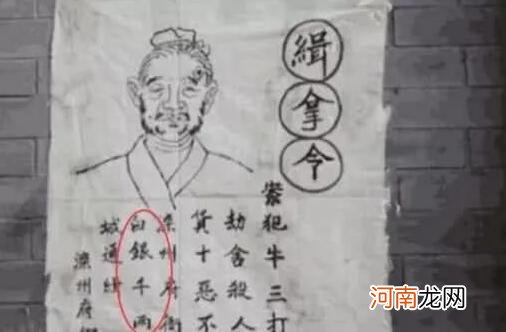 緝拿令
案犯牛三打
劫舍殺人
貨十惡不
滦州府衙
白銀千兩
城通緝
滦州府
河南龙网